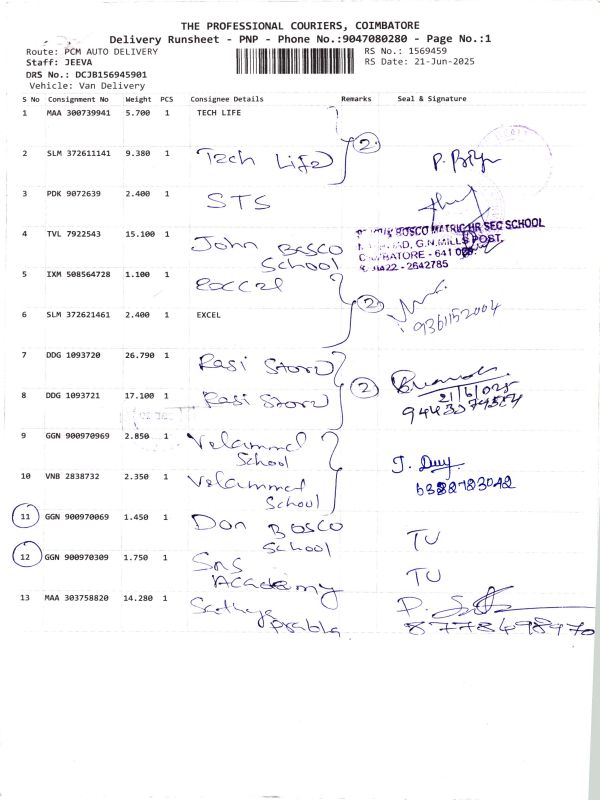 THE PROFESSIONAL COURIERS, COIMBATORE
Delivery Runsheet - PNP - Phone No.:9047080280 - Page No.:1
Route: PCM AUTO DELIVERY
RS No.: 1569459
Staff: JEEVA
RS Date: 21-Jun-2025
DRS No.: DCJB156945901
Vehicle: Van Delivery
S No Consignment No Weight PCS Consignee Details Remarks Seal & Signature
1 MAA 300739941 5.700 1 TECH LIFE
2
2 SLM 372611141 9.380 1 Tech Life
3 PDK 9072639 2.400 1 STS
4 TVL 7922543 15.100 1 John Bosco School
BOSCO MATRIC HR SEC SCHOOL
G.N.MILLS POST,
- 641 029.
0422 - 2642785
5 IXM 508564728 1.100 1 Excel
2
9361152004
6 SLM 372621461 2.400 1 EXCEL
7 DDG 1093720 26.790 1 Rasi Store
2
21/6/025
8 DDG 1093721 17.100 1 Rasi Store
9 GGN 900970969 2.850 1 Velammal School
10 VNB 2838732 2.350 1 Velammal School
11 GGN 900970069 1.450 1 Don Bosco School TU
12 GGN 900970309 1.750 1 SNS Academy TU
13 MAA 303758820 14.280 1 Sathya Prabha
8778498970